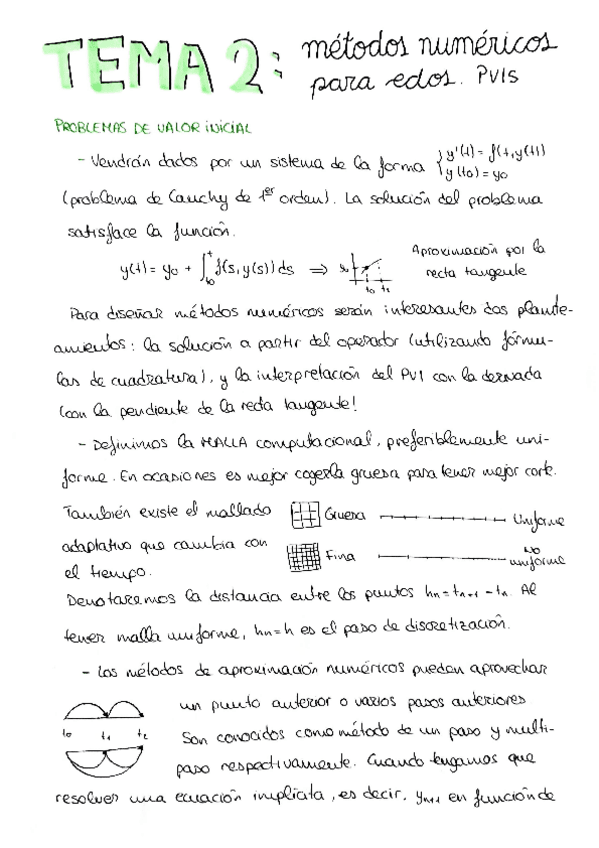 TEMA 2: métodos numéricos
para edos. PVIs
PROBLEMAS DE VALOR INICIAL
- Vendrán dados por un sistema de la forma { y'(t) = f(t,y(t))
y(t0) = y0
(problema de Cauchy de 1er orden). La solución del problema
satisface la función.
y(t) = y0 + ∫ f(s,y(s)) ds ⇒ Aproximación por la
recta tangente
t0 t1
Para diseñar métodos numéricos serán interesantes dos plante-
amientos: la solución a partir del operador (utilizando fórmu-
las de cuadratura), y la interpretación del PVI con la derivada
(con la pendiente de la recta tangente!
- Definimos la MALLA computacional, preferiblemente uni-
forme. En ocasiones es mejor cogerla gruesa para tener mejor
También existe el mallado Gruesa Uniforme
adaptativo que cambia con Fina NO uniforme
el tiempo.
Denotaremos la distancia entre los puntos hn = tn+1 - tn. Al
tener malla uniforme, hn = h es el paso de discretización.
- Los métodos de aproximación numéricos pueden aprovechar
un punto anterior o varios pasos anteriores
t0 t1 t2 Son conocidos como método de un paso y multi-
paso respectivamente. Cuando tengamos que
resolver una ecuación implícita, es decir, yn+1 en función de